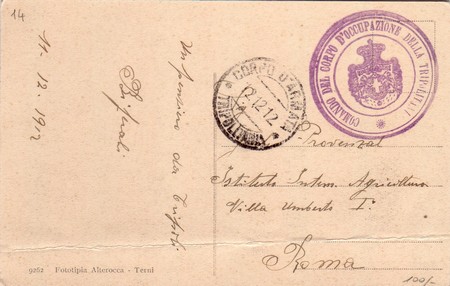 14
11. 12. 1912
Un pensiero da Tripoli
COMANDO DEL CORPO D'OCCUPAZIONE DELLA TRIPOLITANIA
CORPO D'ARMATA
12.12.12
Provenzal
Istituto Intern. Agricoltura
Villa Umberto I.
Roma
9262 Fototipia Alterocca - Terni
100/-